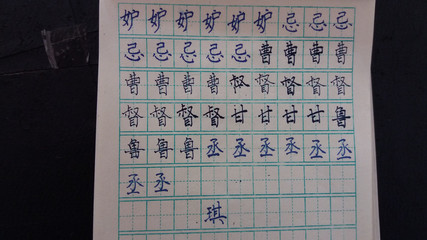 妒妒妒妒妒妒忌忌忌
忌忌忌忌忌曹曹曹曹
曹曹曹曹督督督督督
督督督督甘甘甘甘鲁
鲁鲁鲁丞丞丞丞丞丞
丞丞
琪